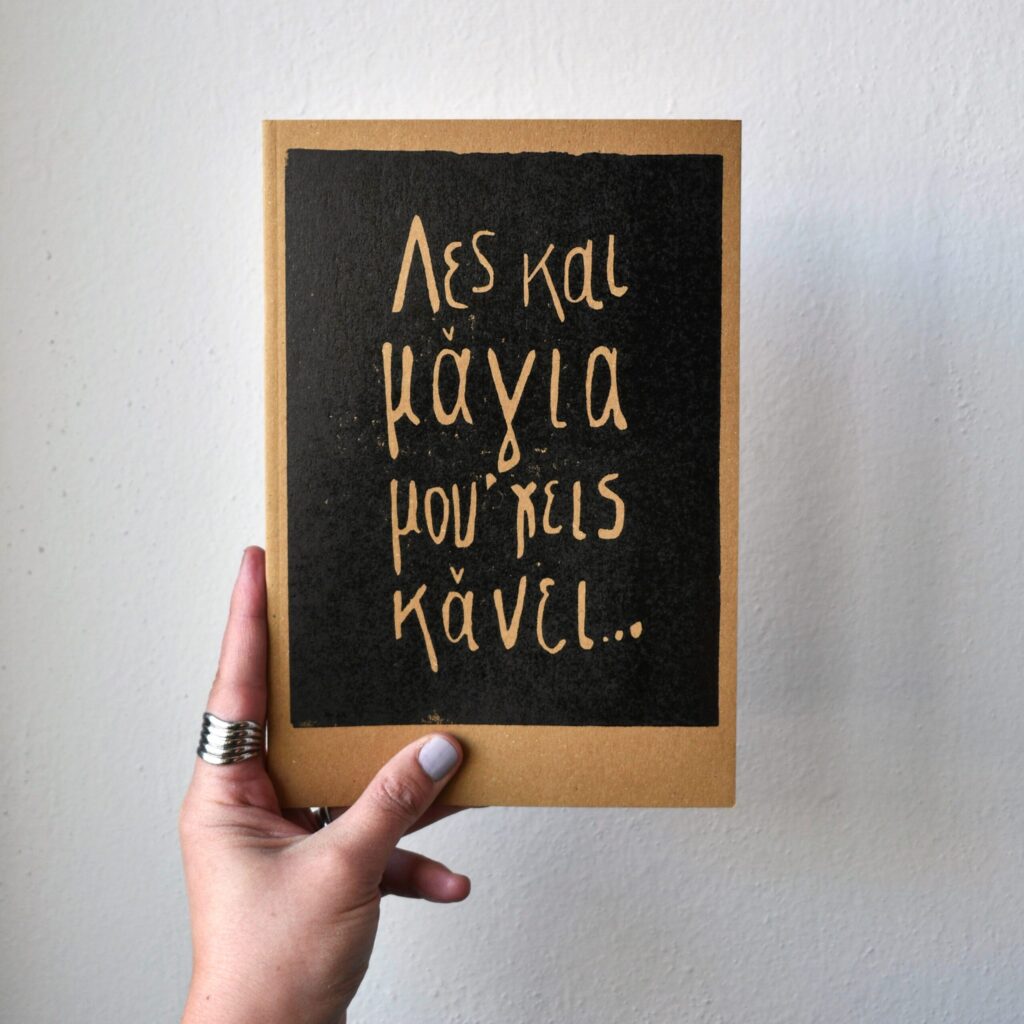 Λες και
μάγια
μου 'χεις
κάνει...